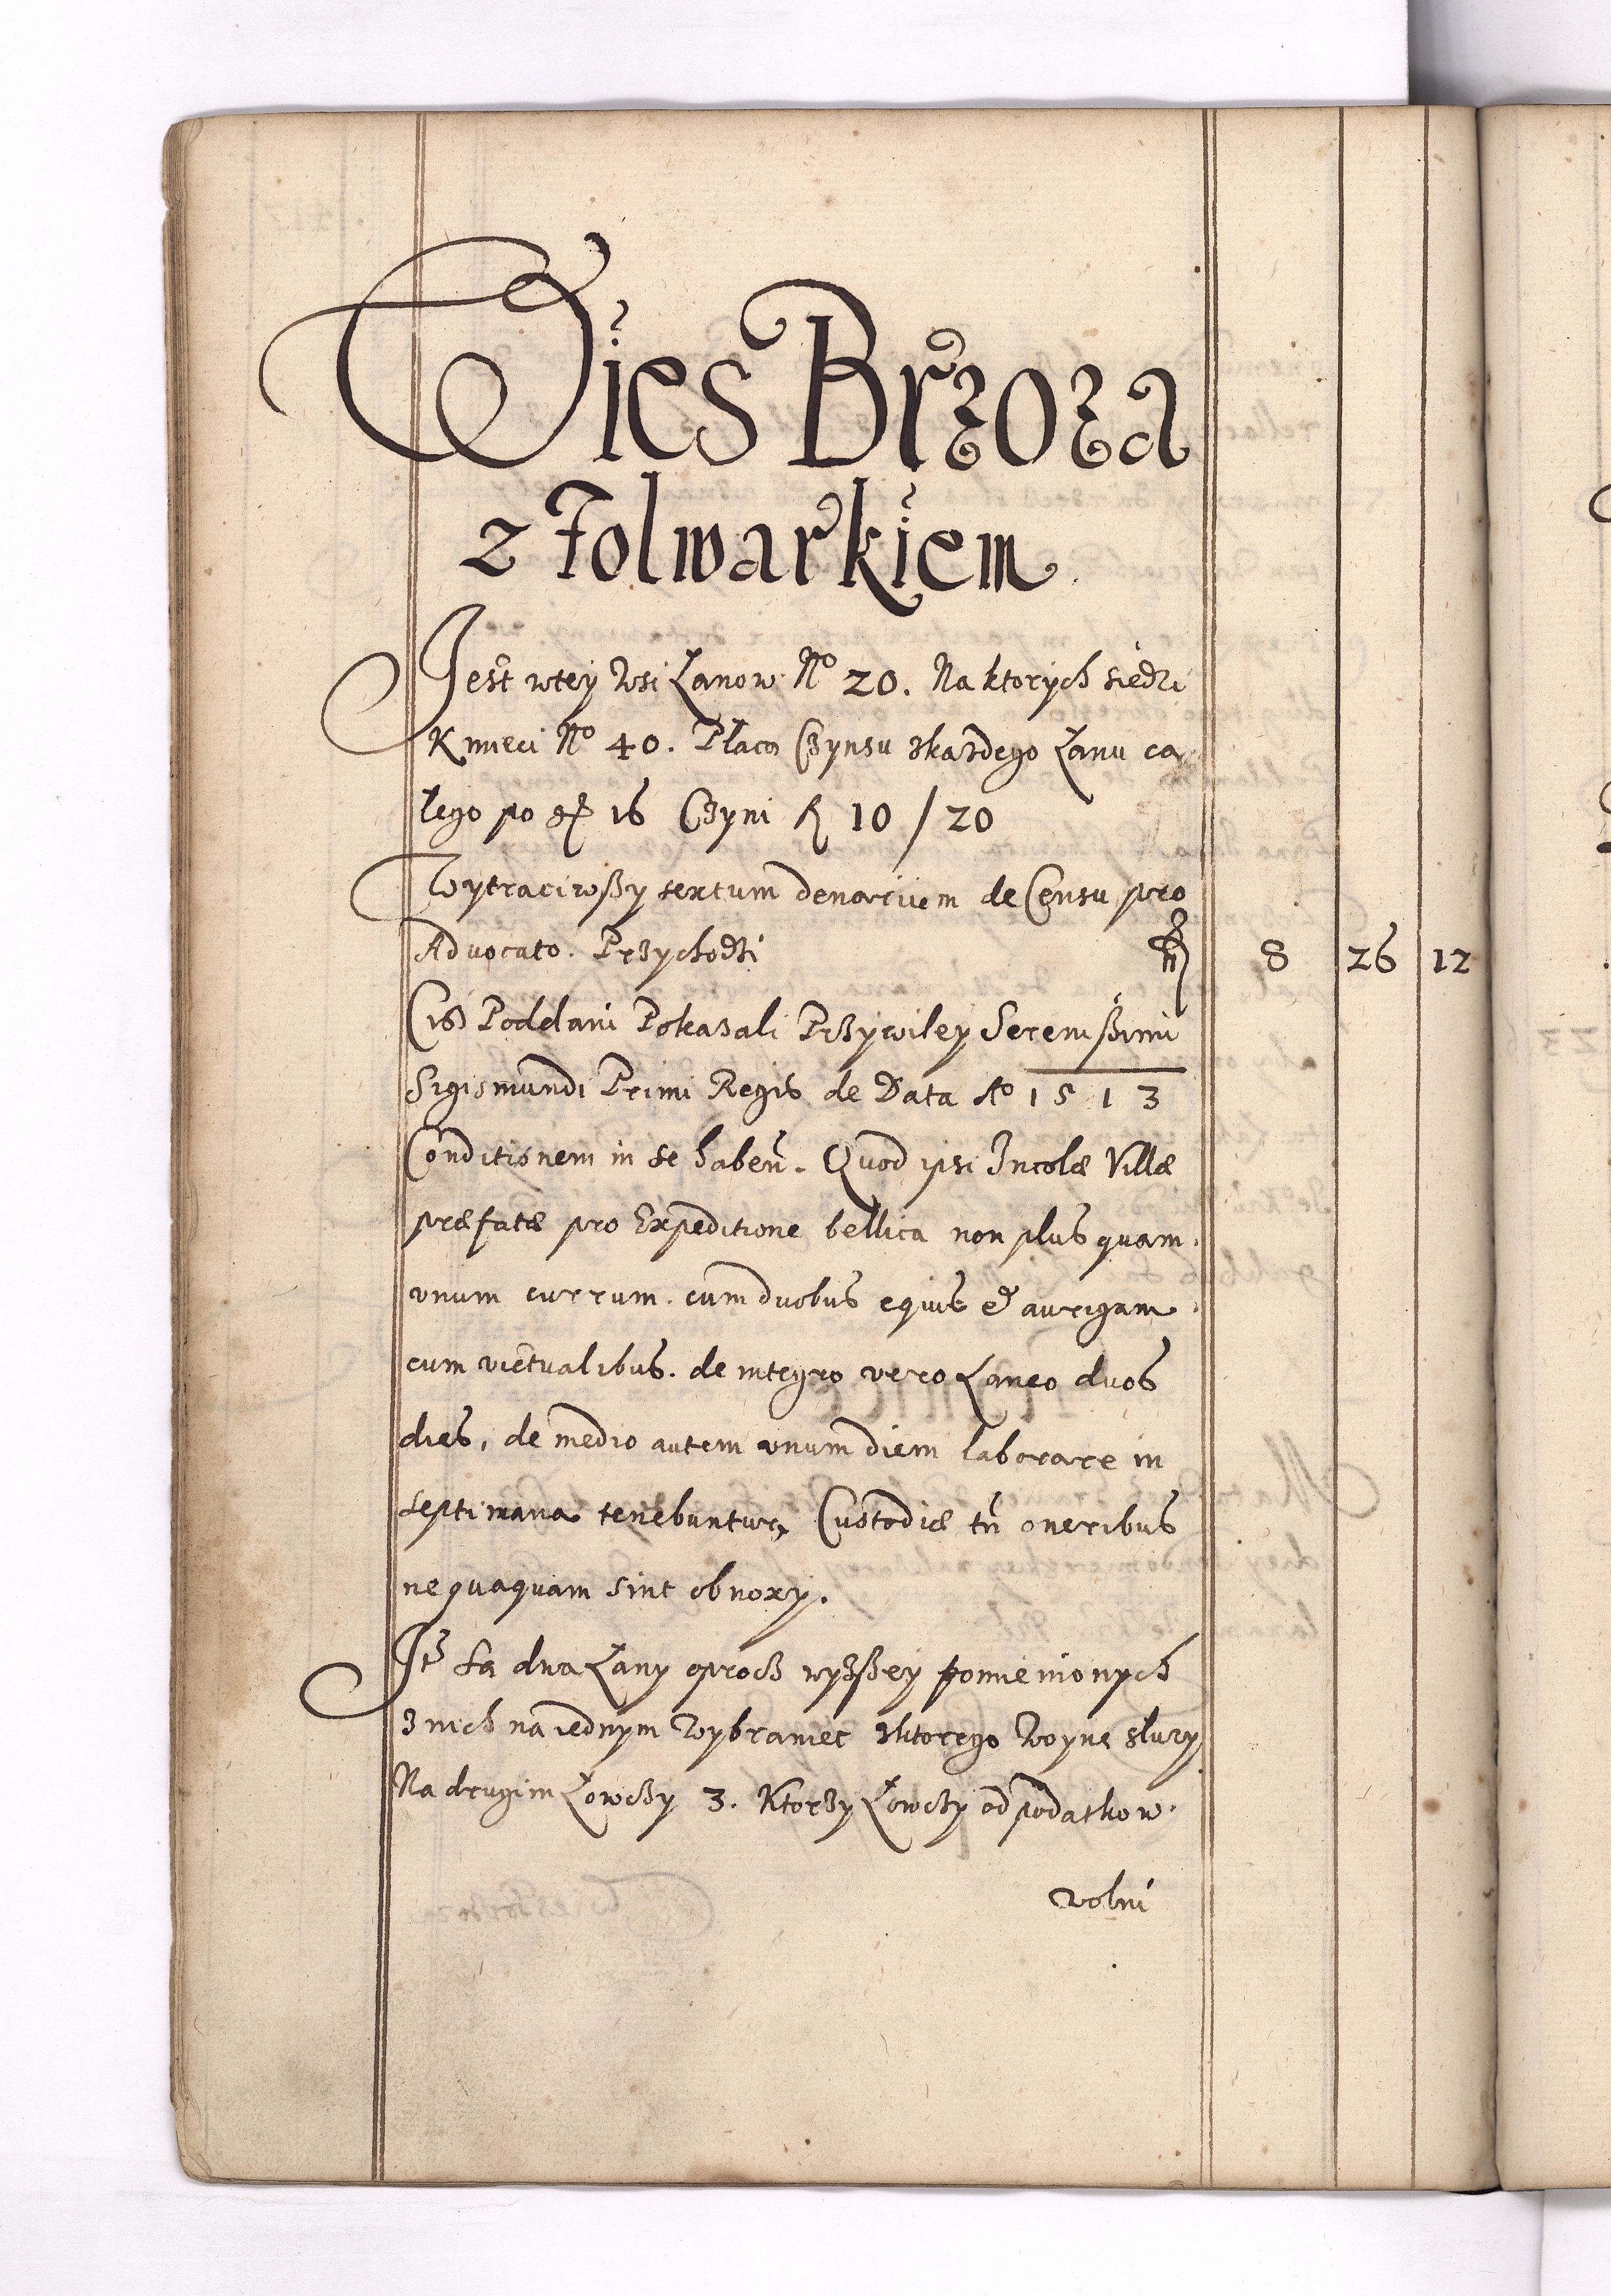 Wies Brzoza
z Folwarkiem
Jest wtey Wsi Łanow Nº 20. Na ktorych siedzi
Kmieci Nº 40. Płacą Czynsu zkazdego Łanu ca
łego po gr 16 Czyni fl 10 / 20
Wytraciwßy sextum denarium de Censu pro
Advocato. Przychodzi fl 8 26 12
Ciż Poddani Pokazali Przywiley Serenißimi
Sigismundi Primi Regis de Data Aº 1513
Conditionem in se haben̄. Quod ipsi Incolæ Villæ
præfatæ pro Expeditione bellica non plus quam
vnum currum. cum duobus equis & aurigam
cum victualibus. de integro vero Laneo duos
dies, de medio autem vnum diem laborare in
septimana tenebuntur, Custodiæ tn̄ oneribus
nequaquam sint obnoxy.
Itʒ Są dwa Łany oprocz wyżßey pomienionych
z nich na iednym Wybraniec zktorego Woynę służy
Na drugim Łowczy 3. Ktorzy Łowczy od podatkow
wolni